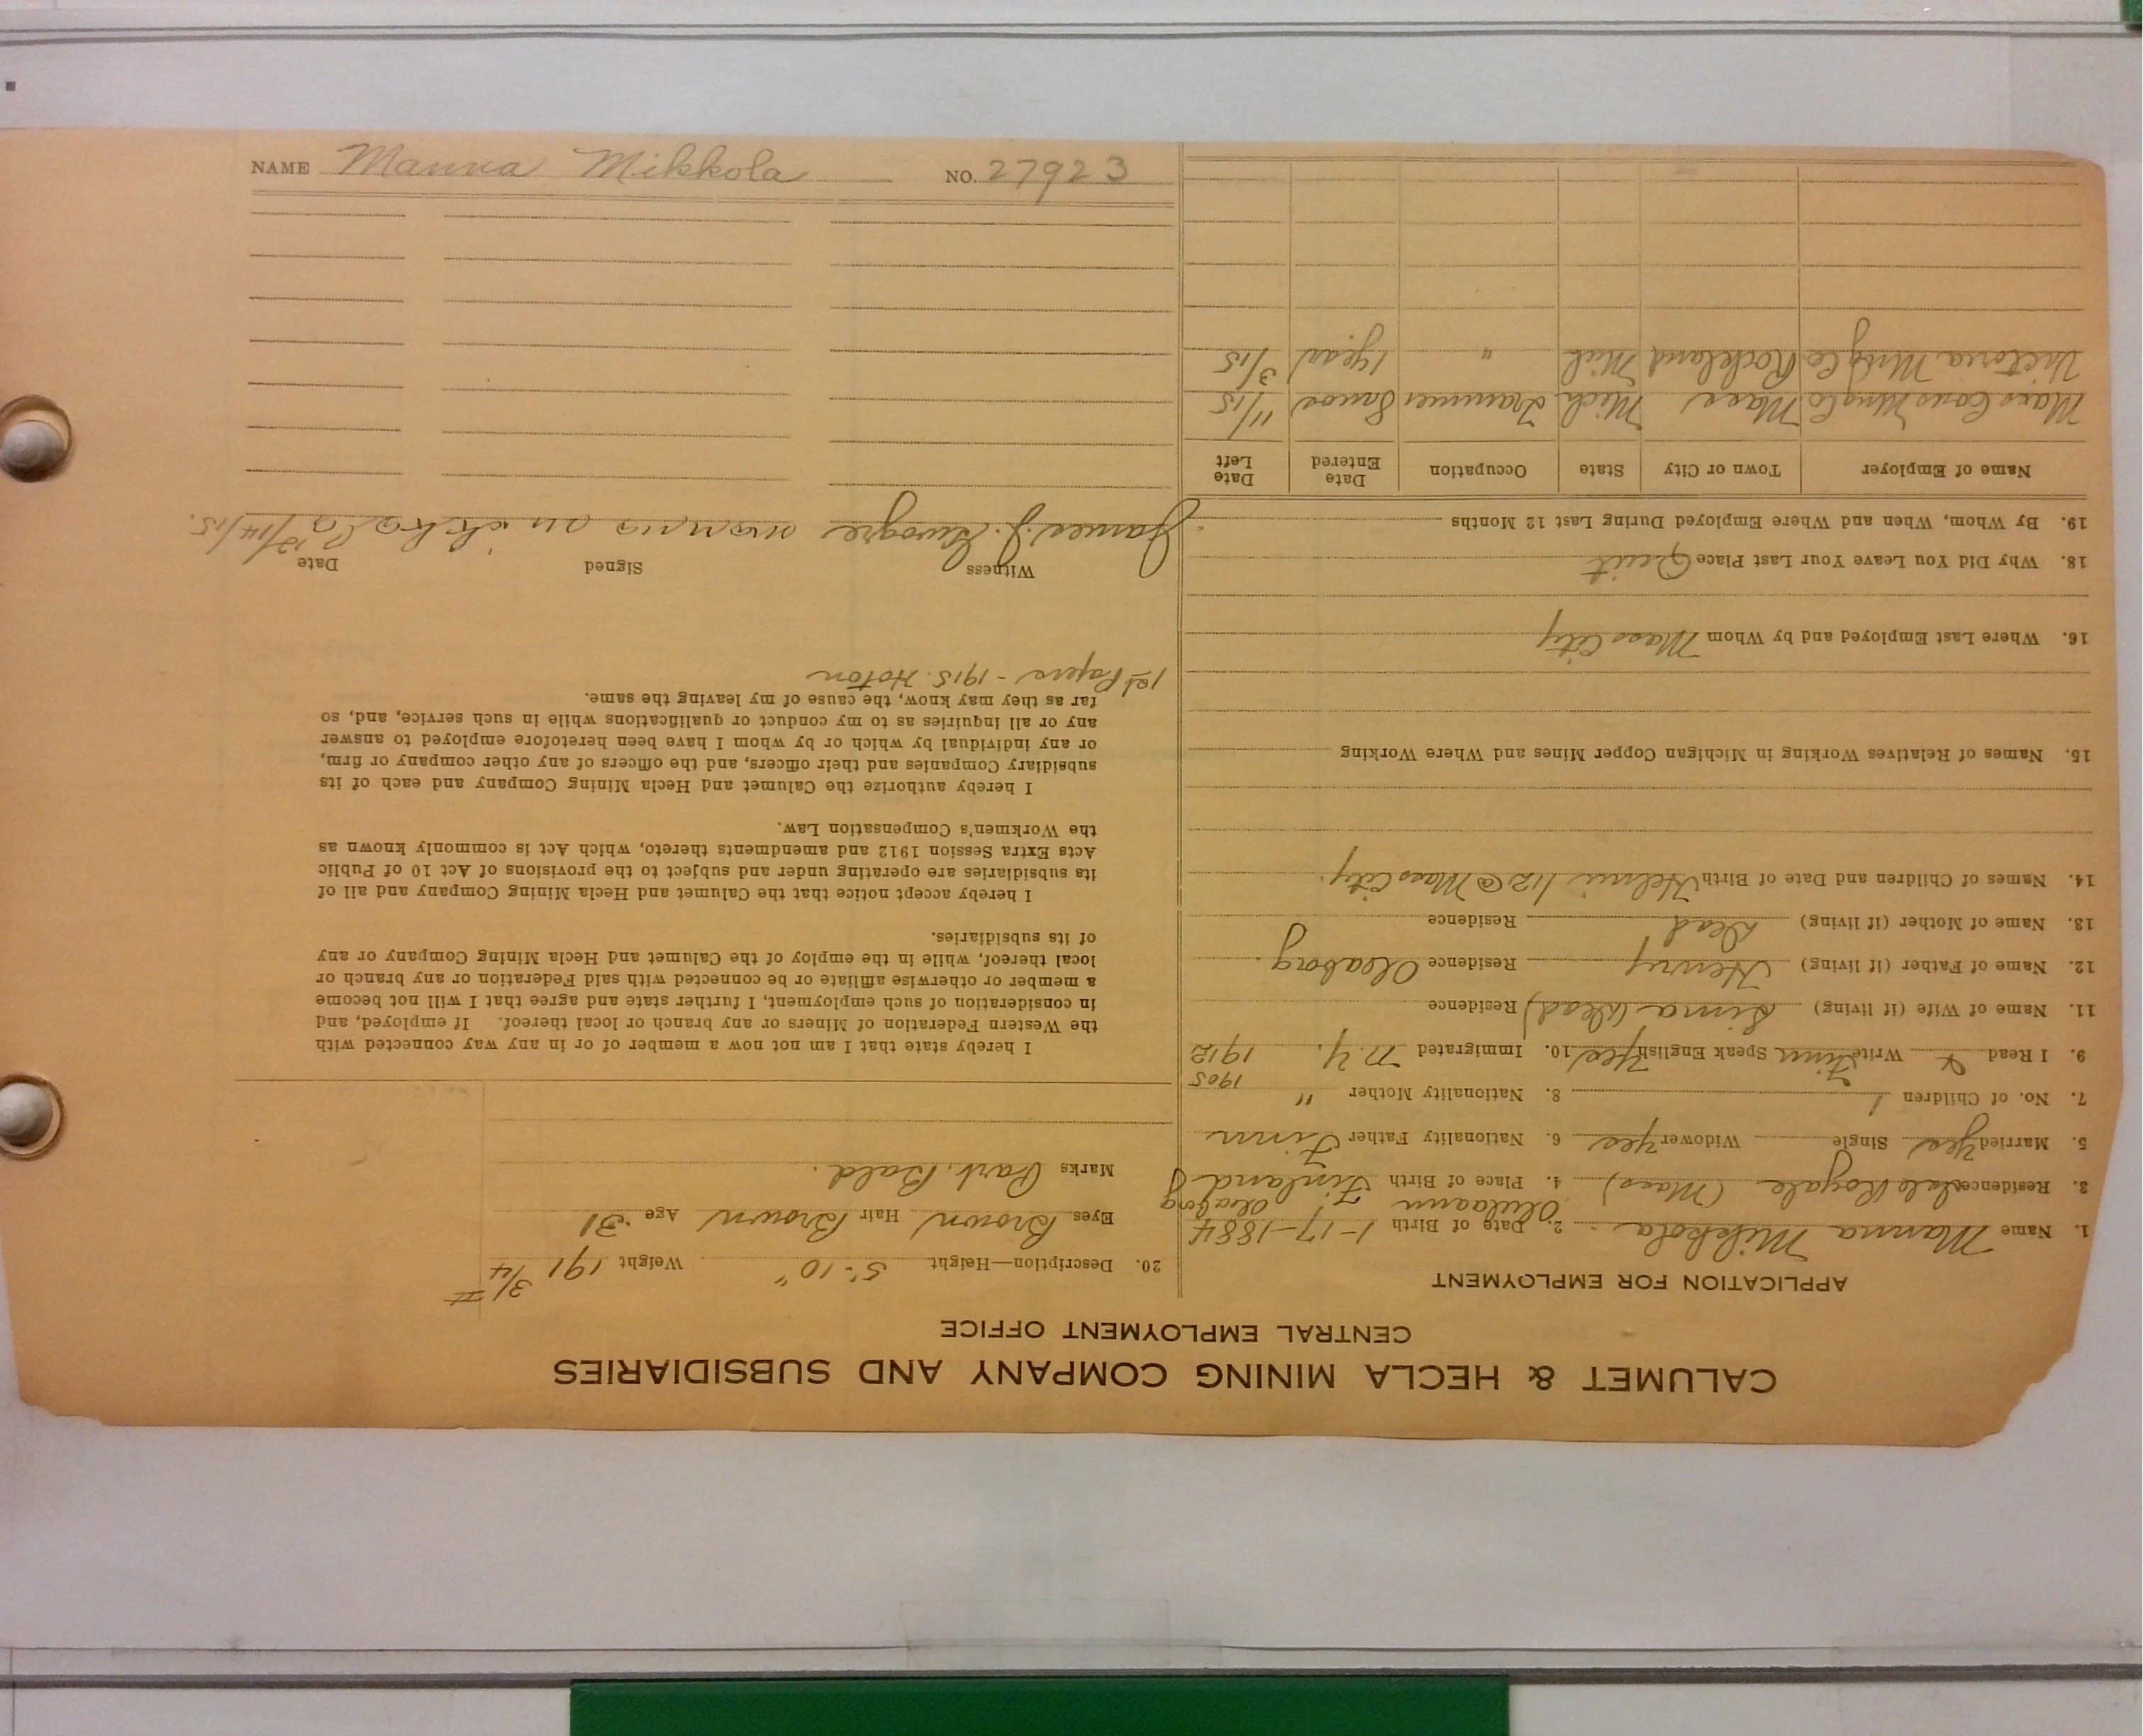 CALUMET & HECLA MINING COMPANY AND SUBSIDIARIES
CENTRAL EMPLOYMENT OFFICE
APPLICATION FOR EMPLOYMENT
1. Name Manna Mikkola 2. Date of Birth 1-17-1884
3. Residence Isle Royale (Mass) 4. Place of Birth Finland
5. Married Yes Single Widower Yes 6. Nationality Father Finn
7. No. of Children 1 8. Nationality Mother "
1905
9. I Read & Write Finn Speak English Yes 10. Immigrated N.Y. 1912
11. Name of Wife (if living) (Dead) Residence
12. Name of Father (if living) Henry Residence Oleaborg.
13. Name of Mother (if living) Dead Residence
14. Names of Children and Date of Birth Helmi 1/12 @ Mass City.
15. Names of Relatives Working in Michigan Copper Mines and Where Working
16. Where Last Employed and by Whom Mass City
18. Why Did You Leave Your Last Place Quit
19. By Whom, When and Where Employed During Last 12 Months
Name of Employer Town or City State Occupation Date Entered Date Left
Mass Cons Mng Co Mass Mich Trammer 11/15
Victoria Mng Co Rockland Mich " 1 year 3/15
20. Description—Height 5'-10" Weight 191 3/4
Eyes Brown Hair Brown Age 31
Marks Part. Bald.
I hereby state that I am not now a member of or in any way connected with
the Western Federation of Miners or any branch or local thereof. If employed, and
in consideration of such employment, I further state and agree that I will not become
a member or otherwise affiliate or be connected with said Federation or any branch or
local thereof, while in the employ of the Calumet and Hecla Mining Company or any
of its subsidiaries.
I hereby accept notice that the Calumet and Hecla Mining Company and all of
its subsidiaries are operating under and subject to the provisions of Act 10 of Public
Acts Extra Session 1912 and amendments thereto, which Act is commonly known as
the Workmen's Compensation Law.
I hereby authorize the Calumet and Hecla Mining Company and each of its
subsidiary Companies and their officers, and the officers of any other company or firm,
or any individual by which or by whom I have been heretofore employed to answer
any or all inquiries as to my conduct or qualifications while in such service, and, so
far as they may know, the cause of my leaving the same.
1st Papers - 1915. Hoton
Witness Signed Date
James J. 12/14/15.
NAME Manna Mikkola NO. 27923